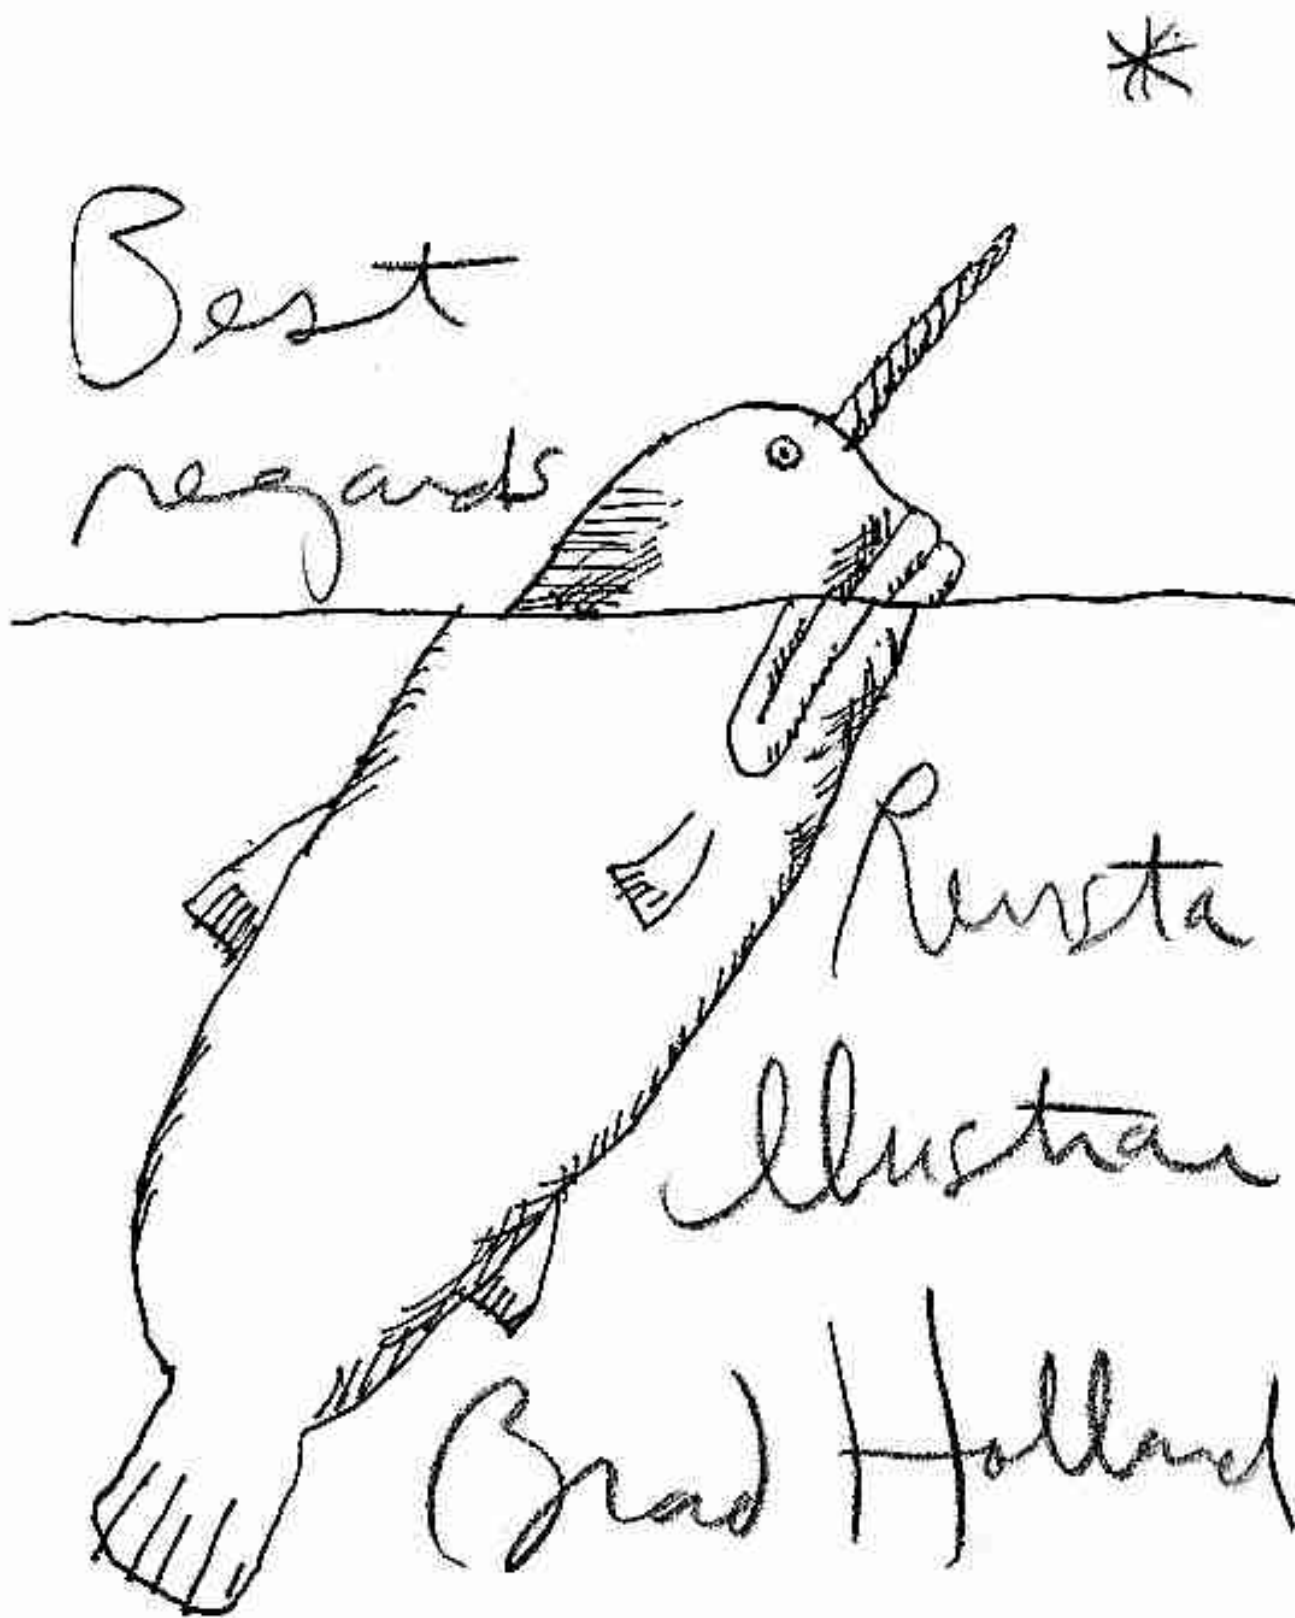 Best
regards
Revista
Ilustrar
Brad Holland